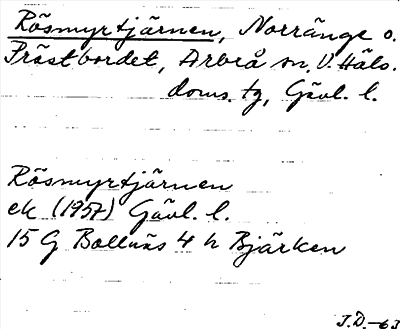 Rösmyrtjärnen, Norränge o.
Prästbordet, Arbrå sn, V. Häls.
doms. tg, Gävl. l.
Rösmyrtjärnen
ek (1957) Gävl. l.
15 G Bollnäs 4 h Bjärken
J.D.-63